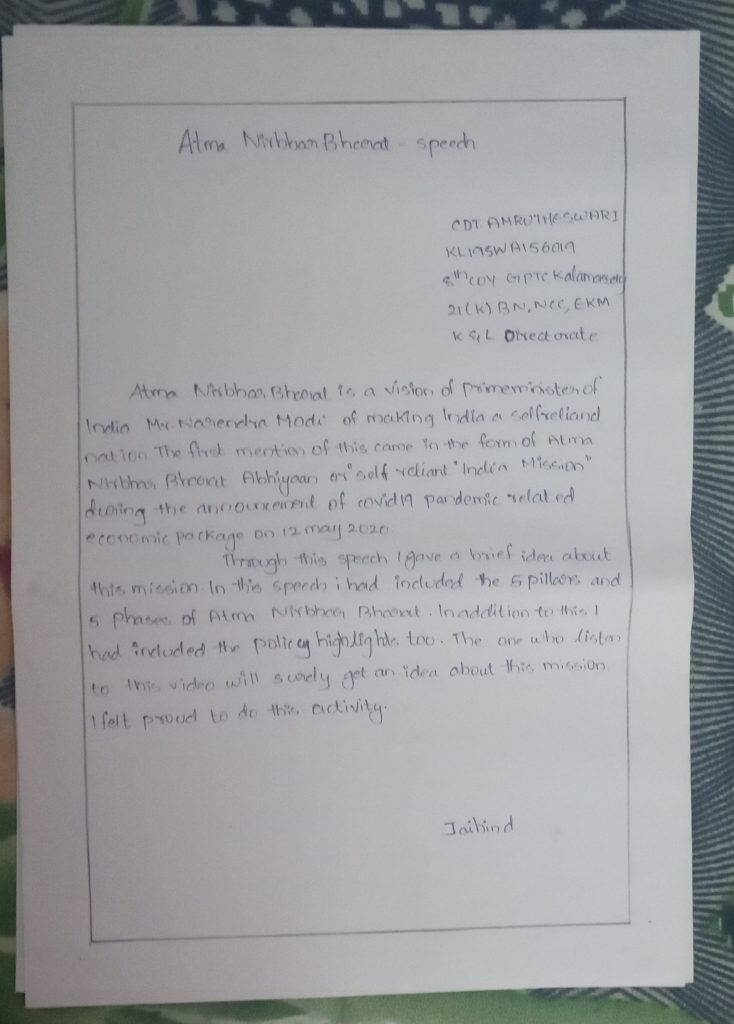 Atma Nirbhar Bharat - speech
CDT AMRUTHESWARI
KL19SWA156019
8th COY GPTC Kalamassery
21(K) BN, NCC, EKM
K & L Directorate
Atma Nirbhar Bharat is a vision of primeminister of
India Mr. Narendra Modi of making India a selfreliand
nation. The first mention of this came in the form of Atma
Nirbhar Bharat Abhiyaan or "self reliant "India Mission"
during the announcement of covid19 pandemic related
economic package on 12 may 2020.
Through this speech I gave a brief idea about
this mission. In this speech i had included the 5 pillars and
5 phases of Atma Nirbhar Bharat. In addition to this I
had included the policy highlights too. The one who listen
to this video will surely get an idea about this mission
I felt proud to do this activity.
Jaihind